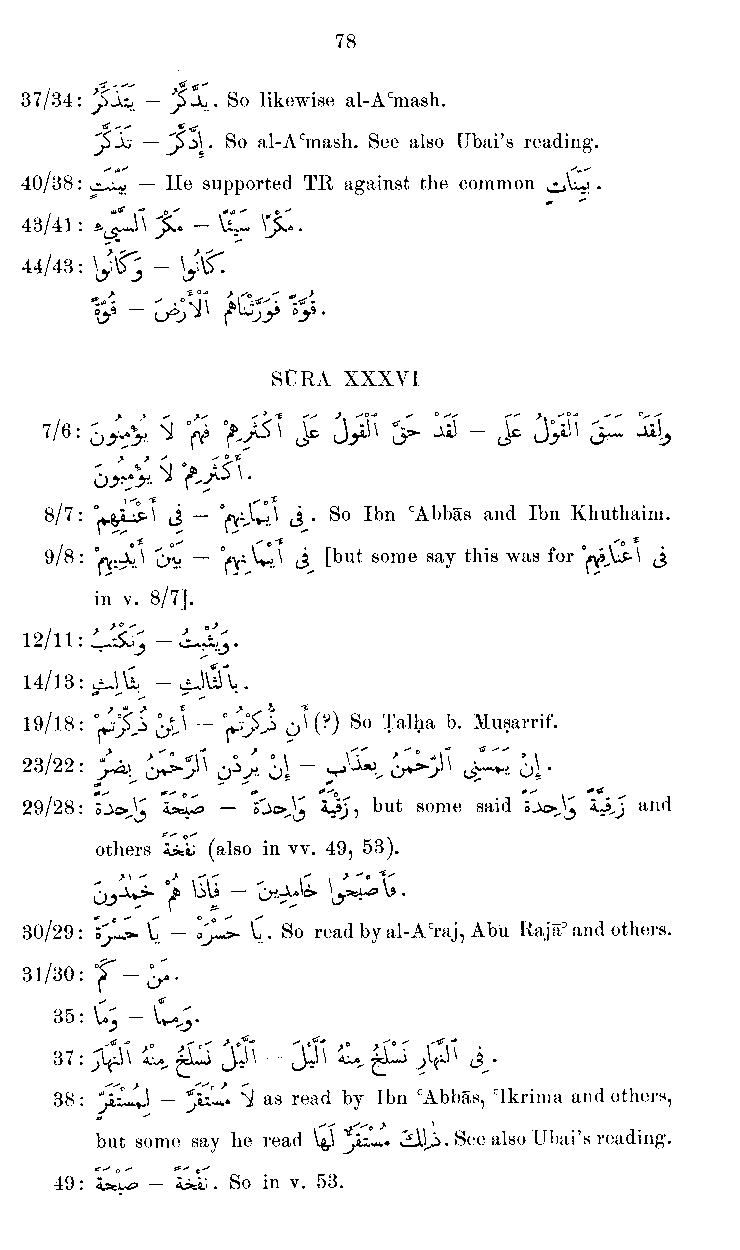 78
37/34: يَتَذَكَّرُ – يَذَّكَّرُ. So likewise al-Aʿmash.
تَذَكَّرَ – إِذَّكَّرَ. So al-Aʿmash. See also Ubai's reading.
40/38: بَيِّنَتٍ – He supported TR against the common بَيِّنَاتٍ.
43/41: مَكْرَ ٱلسَّيِّىءِ – مَكْرًا سَيِّئًا.
44/43: وَكَانُوا – كَانُوا.
قُوَّةً – قُوَّةً فَوَرَّثْنَاهُم ٱلْأَرْضَ.
SŪRA XXXVI
7/6: وَلَقَدْ سَبَقَ ٱلْقَوْلُ عَلَى – لَقَدْ حَقَّ ٱلْقَوْلُ عَلَى أَكْثَرِهِمْ فَهُمْ لَا يُؤْمِنُونَ
أَكْثَرِهِمْ لَا يُؤْمِنُونَ.
8/7: فِى أَعْنَٰقِهِمْ – فِى أَيْمَٰنِهِمْ. So Ibn ʿAbbās and Ibn Khuthaim.
9/8: بَيْنَ أَيْدِيهِمْ – فِى أَيْمَانِهِمْ [but some say this was for فِى أَعْنَاقِهِمْ
in v. 8/7].
12/11: وَنَكْتُبُ – وَيُثْبِتُ.
14/13: بِثَالِثٍ – بِٱلثَّالِثِ.
19/18: أَئِنْ ذُكِّرْتُمْ – أَن ذُكِرْتُمْ (?) So Ṭalḥa b. Muṣarrif.
23/22: إِنْ يُرِدْنِ ٱلرَّحْمَنُ بِضُرٍّ – إِنْ يَمَسَّنِى ٱلرَّحْمَنُ بِعَذَابٍ.
29/28: صَيْحَةً وَاحِدَةً – زَقْيَةً وَاحِدَةً, but some said زَقِيَّةً وَاحِدَةً and
others نَفْخَةً (also in vv. 49, 53).
فَإِذَا هُمْ خَٰمِدُونَ – فَأَصْبَحُوا خَامِدِينَ.
30/29: يَا حَسْرَةً – يَا حَسْرَهْ. So read by al-Aʿraj, Abu Rajāʾ and others.
31/30: كَمْ – مَنْ.
35: وَمَا – وَمِمَّا.
37: ٱلَّيْلُ نَسْلَخُ مِنْهُ ٱلنَّهَارَ – فِى ٱلنَّهَارِ نَسْلَخُ مِنْهُ ٱلَّيْلَ.
38: لِمُسْتَقَرٍّ – لَا مُسْتَقَرَّ as read by Ibn ʿAbbās, ʿIkrima and others,
but some say he read ذَٰلِكَ مُسْتَقَرٌّ لَهَا. See also Ubai's reading.
49: صَيْحَةً – نَفْخَةً. So in v. 53.